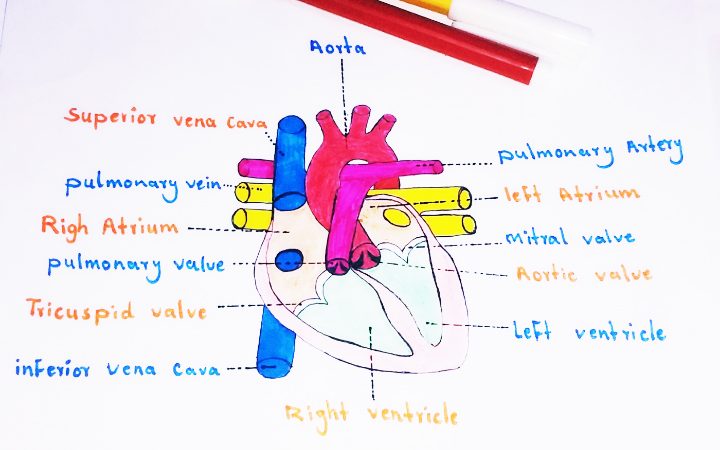 Aorta
Superior vena cava
pulmonary Artery
pulmonary vein
left Atrium
Righ Atrium
Mitral valve
pulmonary valve
Aortic valve
Tricuspid valve
Left ventricle
inferior vena cava
Right ventricle